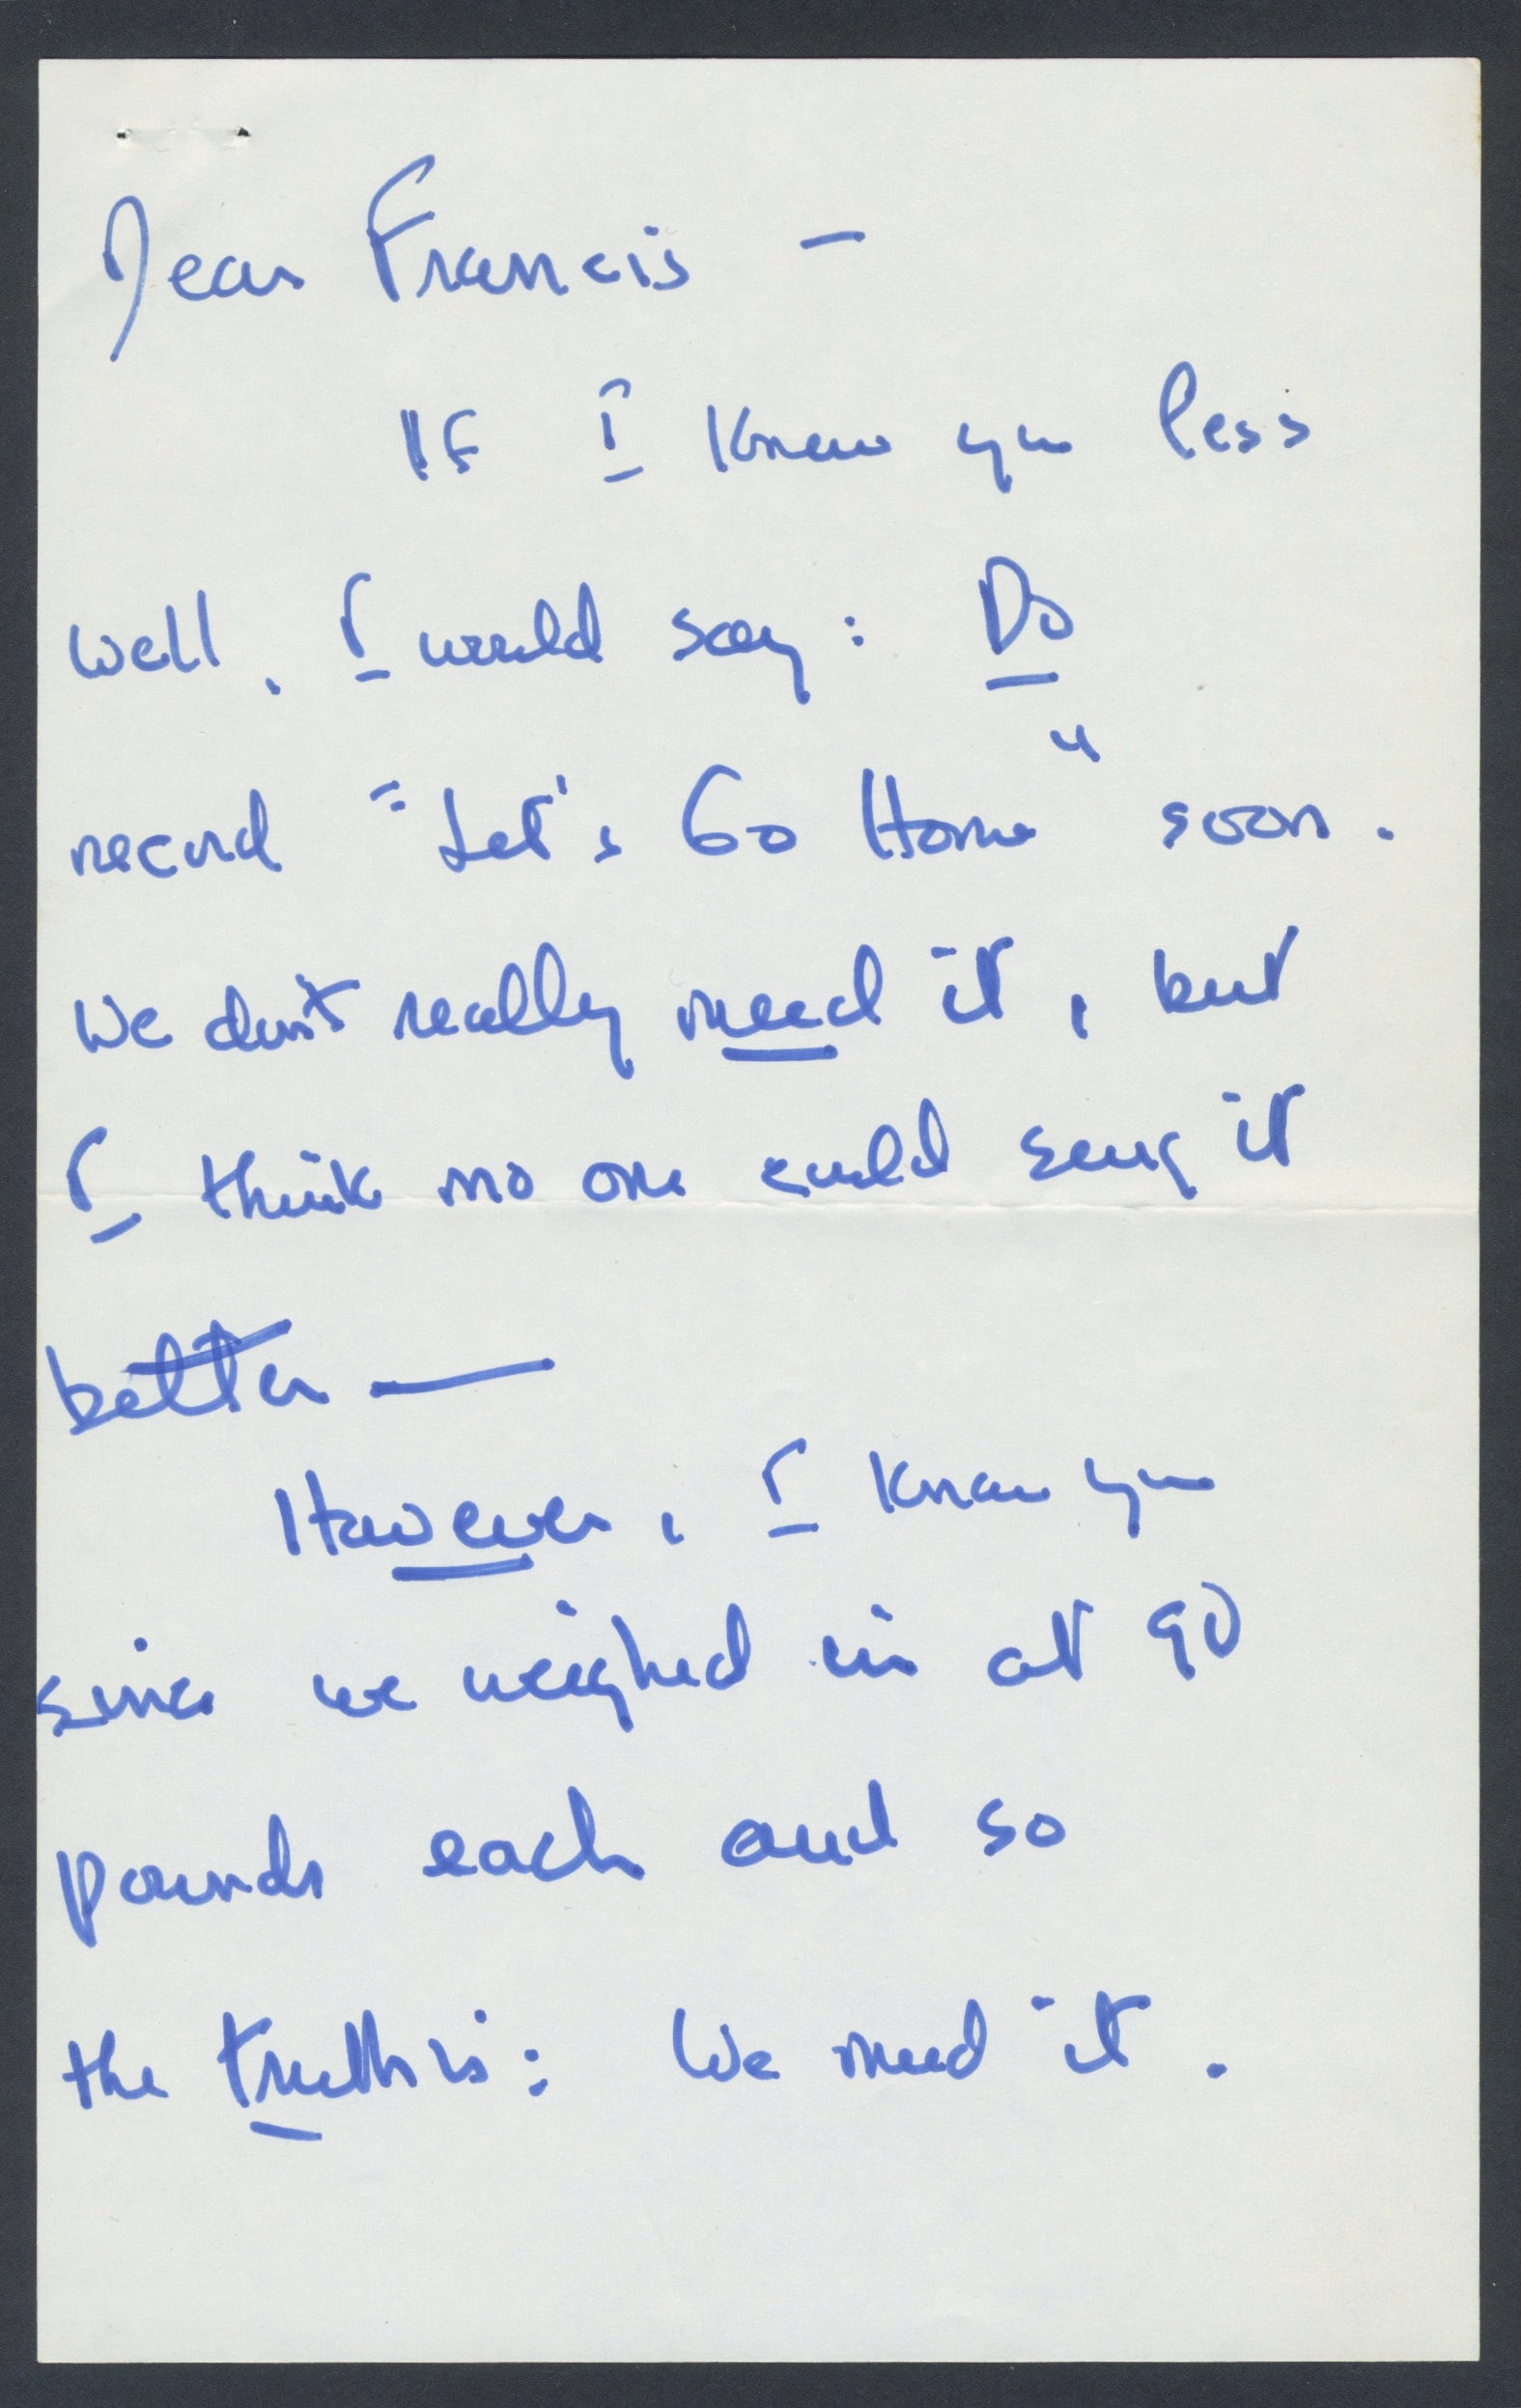 Dear Francis —
If I knew you less
well, I would say: Do
record "Let's Go Home" soon.
We don't really need it, but
I think no one could sing it
better —
However, I know you
since we weighed in at 90
pounds each and so
the truth is: We need it.